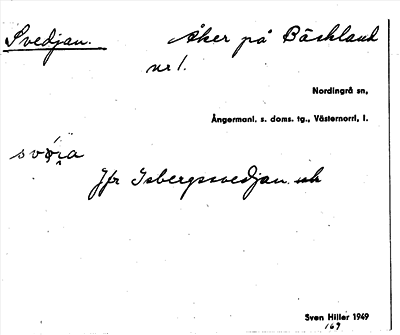 Svedjan. Åker på Bäckland
nr 1.
Nordingrå sn,
Ångermanl. s. doms. tg., Västernorrl. l.
Jfr Isbergssvedjan
Sven Hiller 1949
169